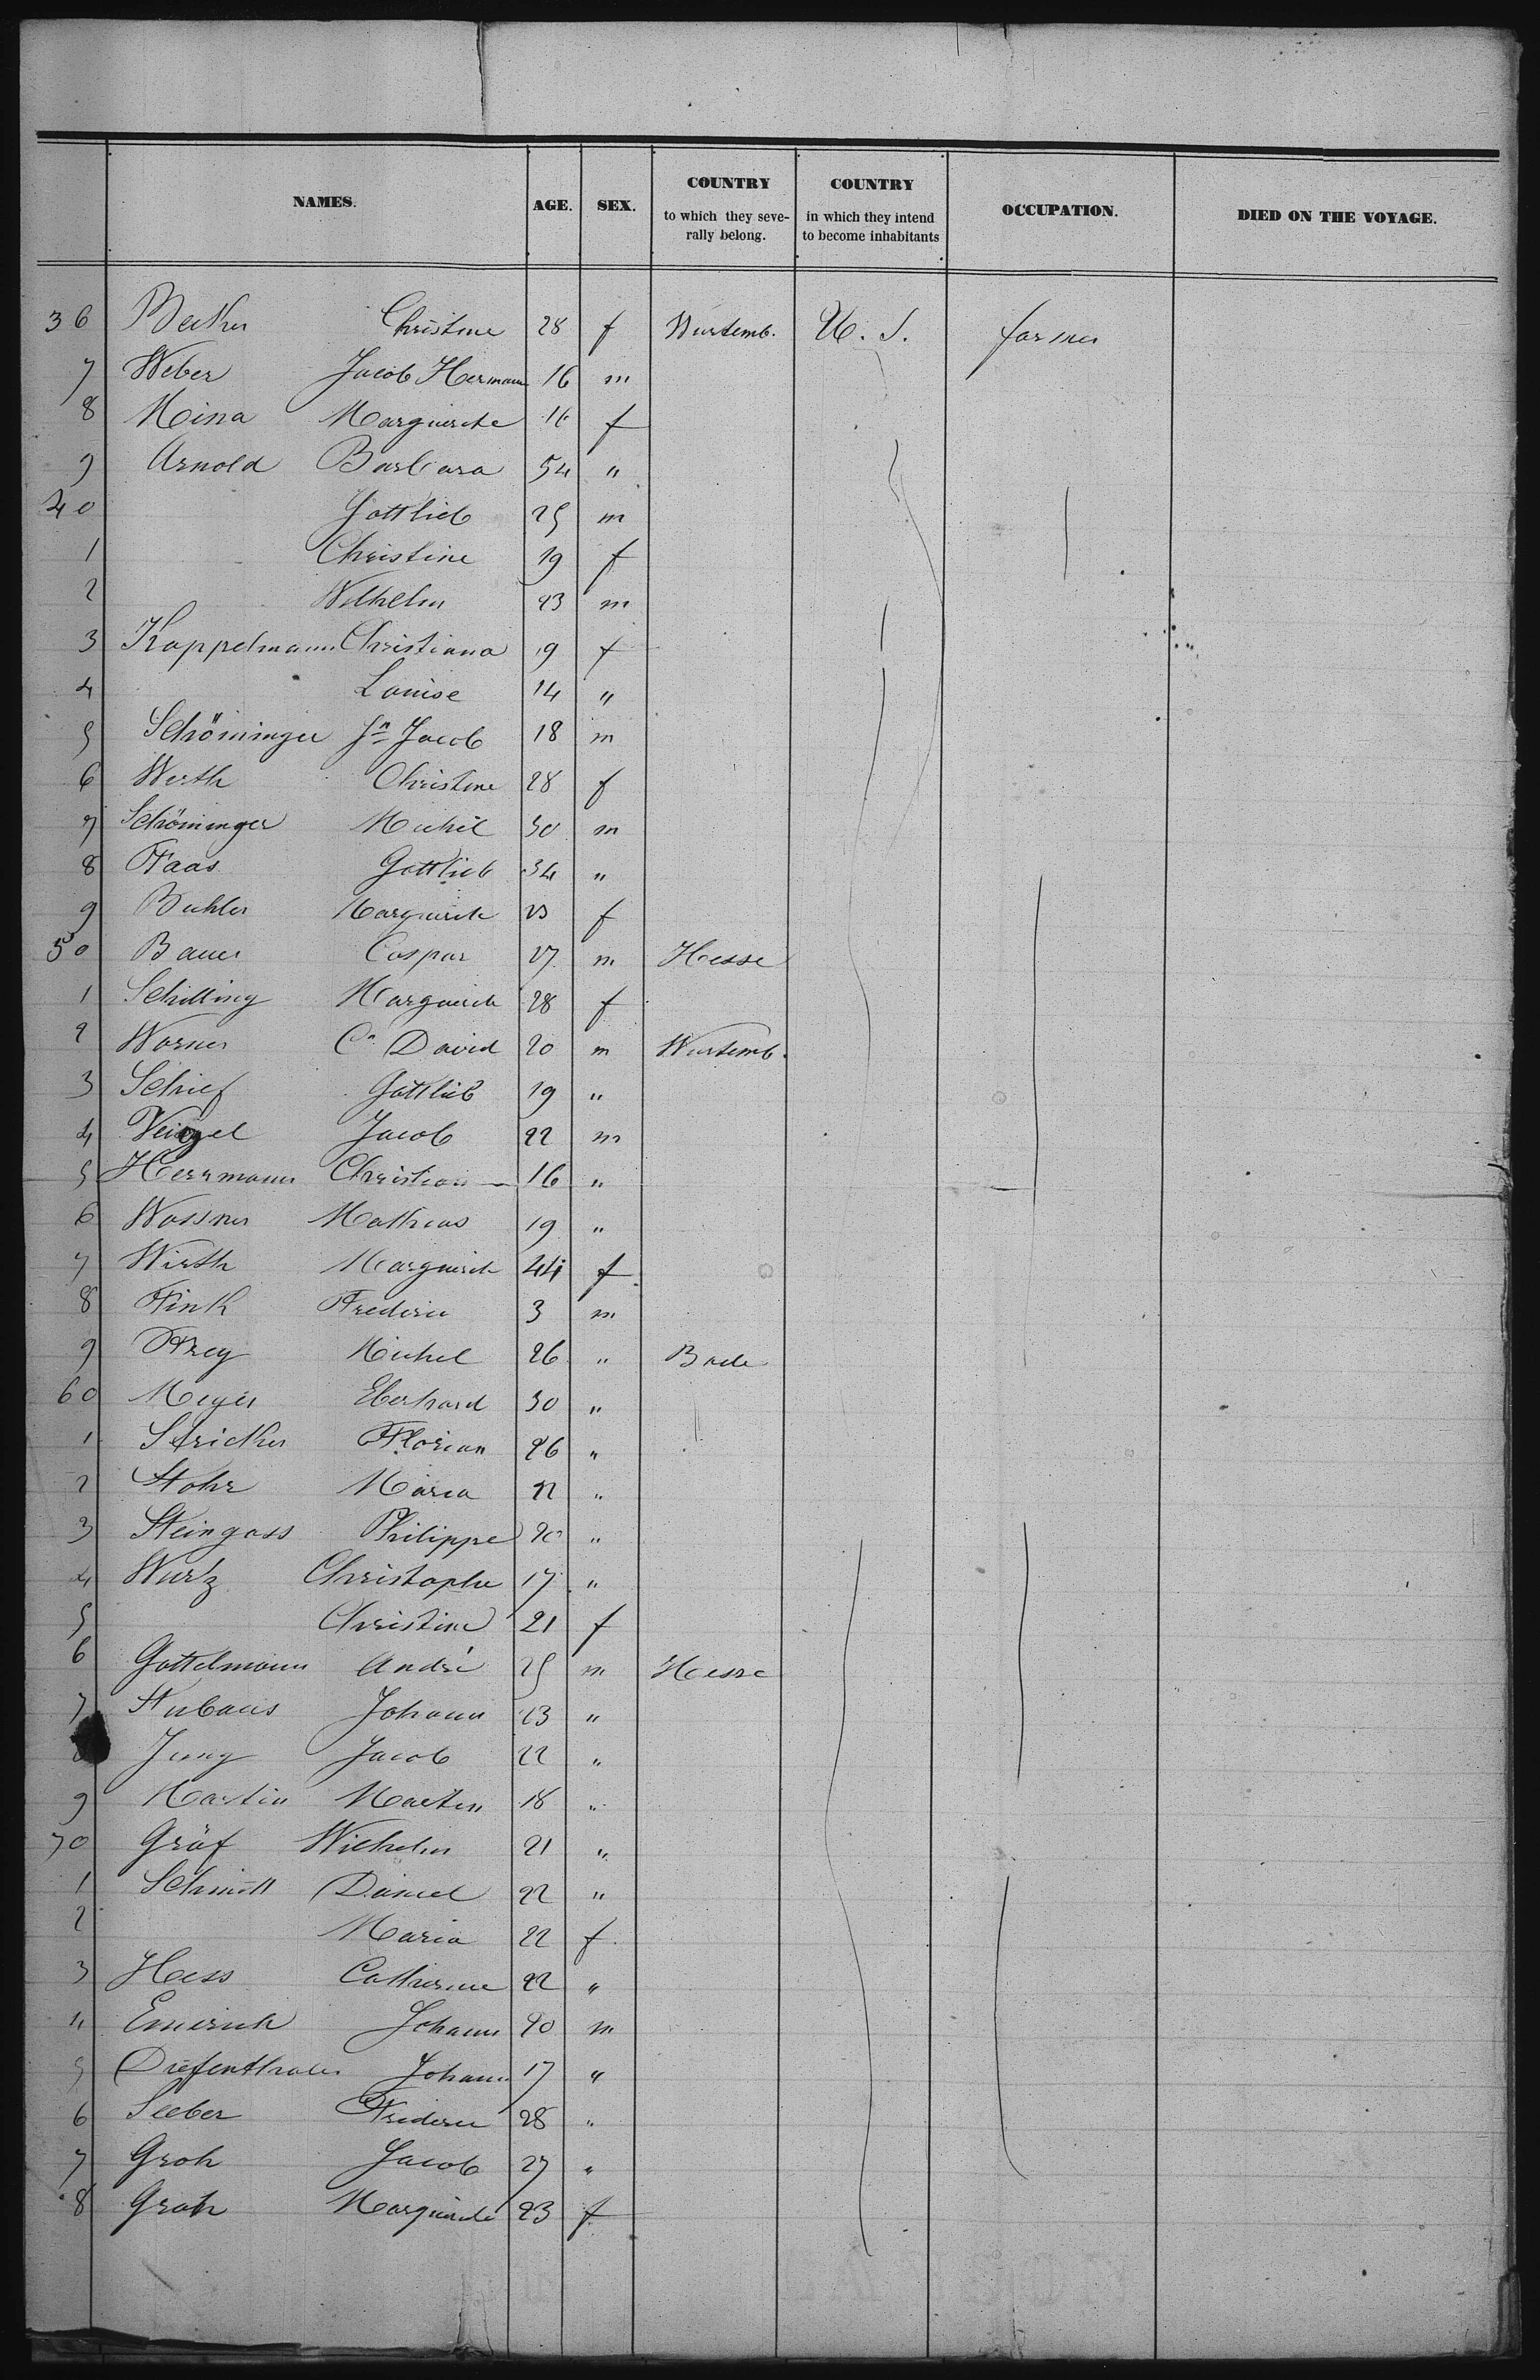 NAMES. AGE. SEX. COUNTRY to which they seve- rally belong. COUNTRY in which they intend to become inhabitants OCCUPATION. DIED ON THE VOYAGE.
36 Becker Christine 28 f Wurtemb. U. S. farmer
7 Weber Jacob Hermann 16 m
8 Meina Marguerite 16 f
9 Arnold Barbara 54 "
40 Gottlieb 25 m
1 Christine 19 f
2 Wilhelm 23 m
3 Kappelmann Christiana 19 f
4 Louise 14 "
5 Schöninger Jn Jacob 18 m
6 Werth Christine 28 f
7 Schöninger Michel 30 m
8 Faas Gottlieb 34 "
9 Buhler Marguerite 23 f
50 Bauer Caspar 27 m Hesse
1 Schilling Marguerite 28 f
2 Worner Cn David 20 m Wurtemb.
3 Schief Gottlieb 19 "
4 Jacob 22 m
5 Herrmann Christian 16 "
6 Wossner Mathias 19 "
7 Wirth Marguerite 44 f
8 Fink Frederic 3 m
9 Frey Michel 26 " Bade
60 Meyer Eberhard 30 "
1 Stricker Florian 26 "
2 Stohr Maria 22 "
3 Steingass Philippe 20 "
4 Wurz Christophe 17 "
5 Christine 21 f
6 Gottelmann André 25 m Hesse
7 Johann 23 "
Jung Jacob 22 "
9 Martin Martin 18 "
70 Gräf Wilhelm 21 "
1 Schmitt Daniel 22 "
2 Maria 22 f
3 Hess Catherine 22 "
4 Emerich Johann 20 m
5 Diefenthaler Johann 17 "
6 Seeber Frederic 28 "
7 Groh Jacob 27 "
8 Groh Marguerite 23 f